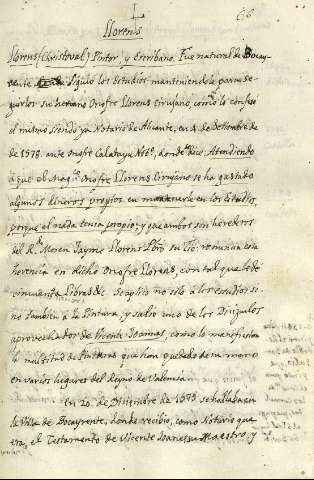 66
Llorens
Llorens (Christoval) Pintor, y Escribano. Fue natural de Bocay-
rente siguio los Estudios manteniendole para se-
guirlos su hermano Onofre Llorens Cirujano, como lo confeso
el mismo siendo ya Notario de Alicante, en 4 de Setiembre de
de 1578. ante Onofre Calatayu Not.º, donde dice: Atendiendo
à que el Mag.co Onofre Llorens Cirujano se ha gastado
algunos dineros propios en mantenerle en los Estudios,
porque el nada tenia propio; y que ambos son herederos
del R.do Mosen Jayme Llorens Pbro su Tio: renuncia esta
herencia en dicho Onofre Llorens, con tal que le dè
cincuenta Libras &c. Se aplicò no solo à los estudios si-
no tambien à la Pintura, y saliò uno de los Dicipulos
aprovechados de Vicente Joannes, como lo manifiesta
la multitud de Pinturas que han quedado de su mano
en varios lugares del Reyno de Valencia.
en 20. de Diciembre de 1579 se hallaba en
la Villa de Bocayrente, donde recibio, como Notario que
era, el Testamento de Vicente Joanes su Maestro, y